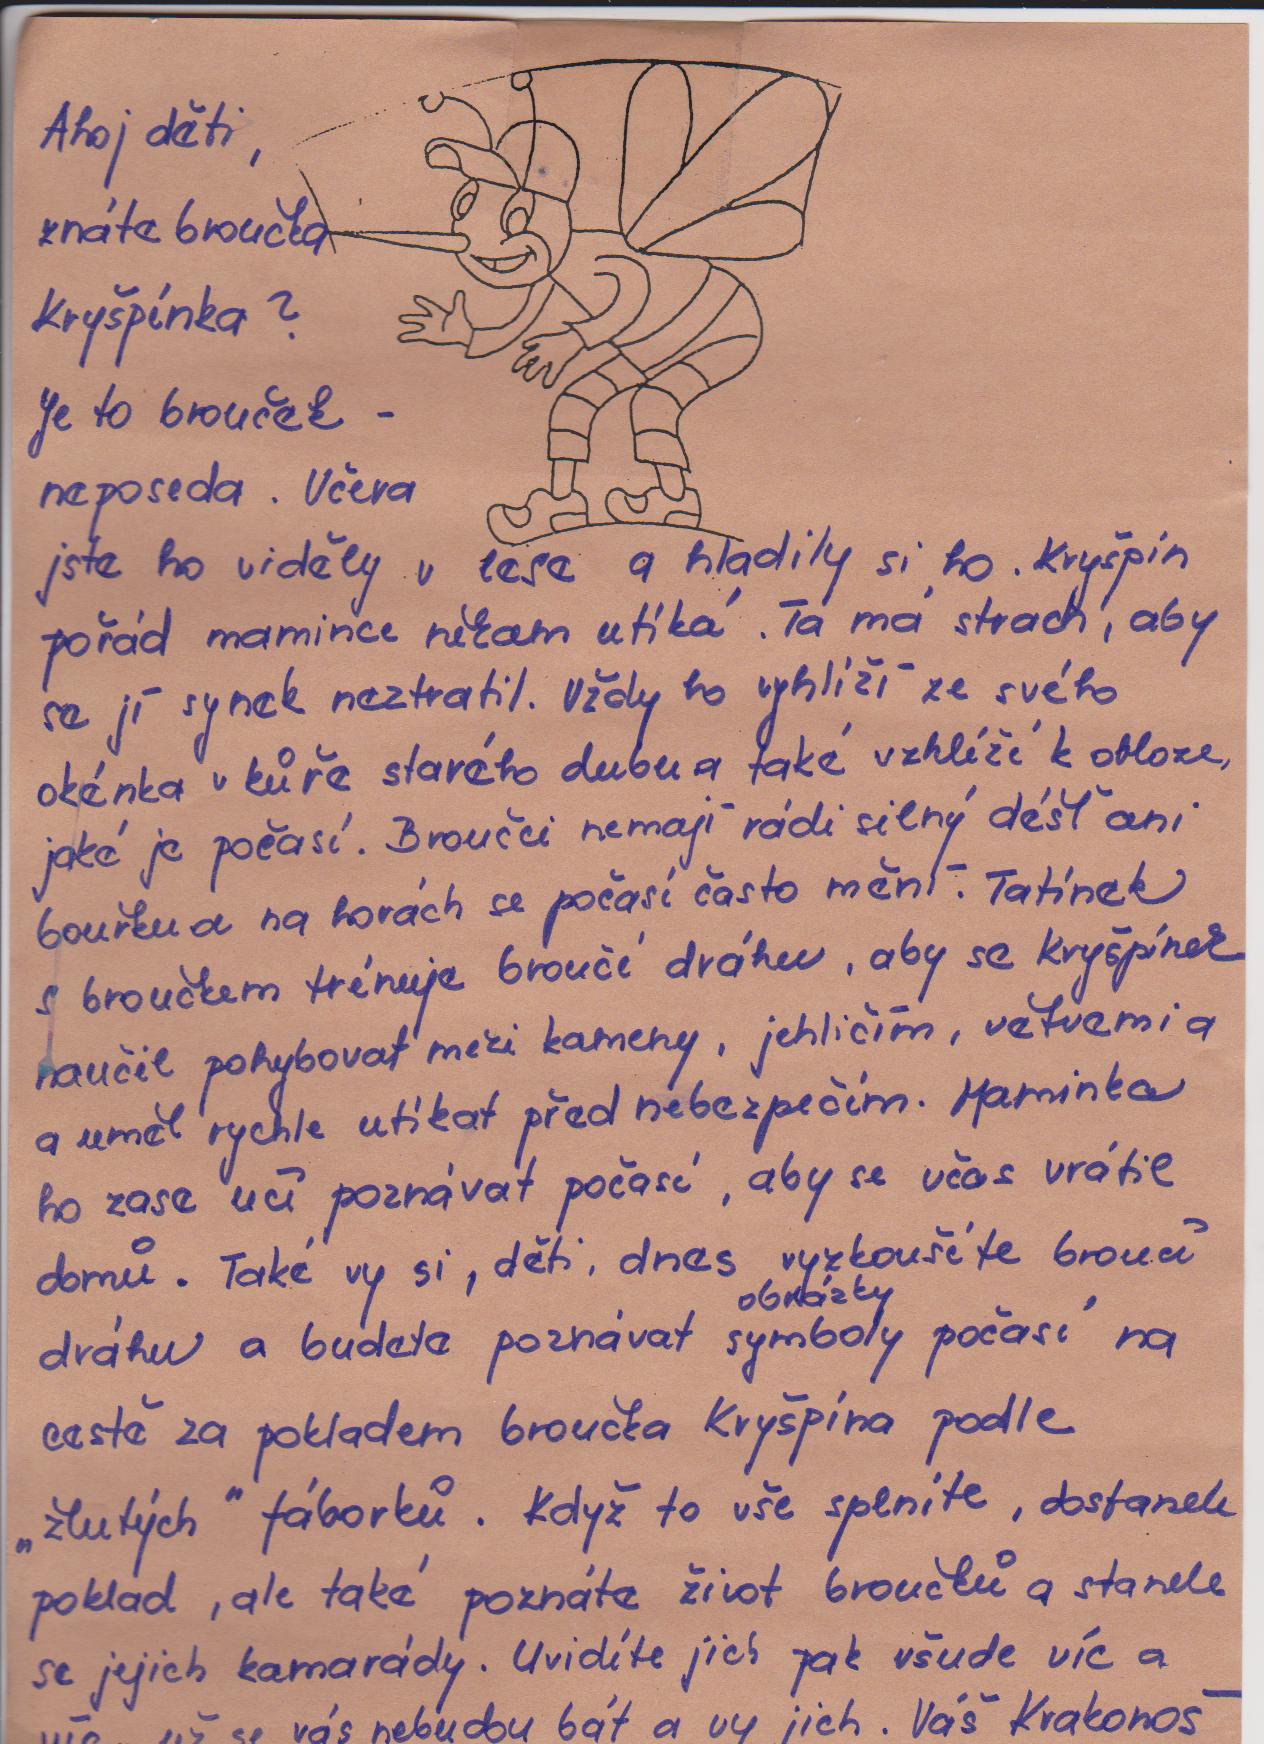 Ahoj děti,
znáte broučka
Kryšpínka?
Je to brouček -
neposeda. Včera
jste ho viděly v lese a hladily si ho. Kryšpín
pořád mamince někam utíká. Ta má strach, aby
se jí synek neztratil. Vždy ho vyhlíží ze svého
okénka v kůře starého dubu a také vzhlíží k obloze,
jaké je počasí. Broučci nemají rádi silný déšť ani
bouřku a na horách se počasí často mění. Tatínek
s broučkem trénuje broučí dráhu, aby se Kryšpínek
naučil pohybovat mezi kameny, jehličím, větvemi a
a uměl rychle utíkat před nebezpečím. Maminka
ho zase učí poznávat počasí, aby se včas vrátil
domů. Také vy si, děti, dnes vyzkoušíte broučí
obrázky
dráhu a budete poznávat symboly počasí na
cestě za pokladem broučka Kryšpína podle
„žlutých" fáborků. Když to vše splníte, dostanete
poklad, ale také poznáte život broučků a stanete
se jejich kamarády. Uvidíte jich pak všude víc a
víc, už se vás nebudou bát a vy jich. Váš Krakonoš